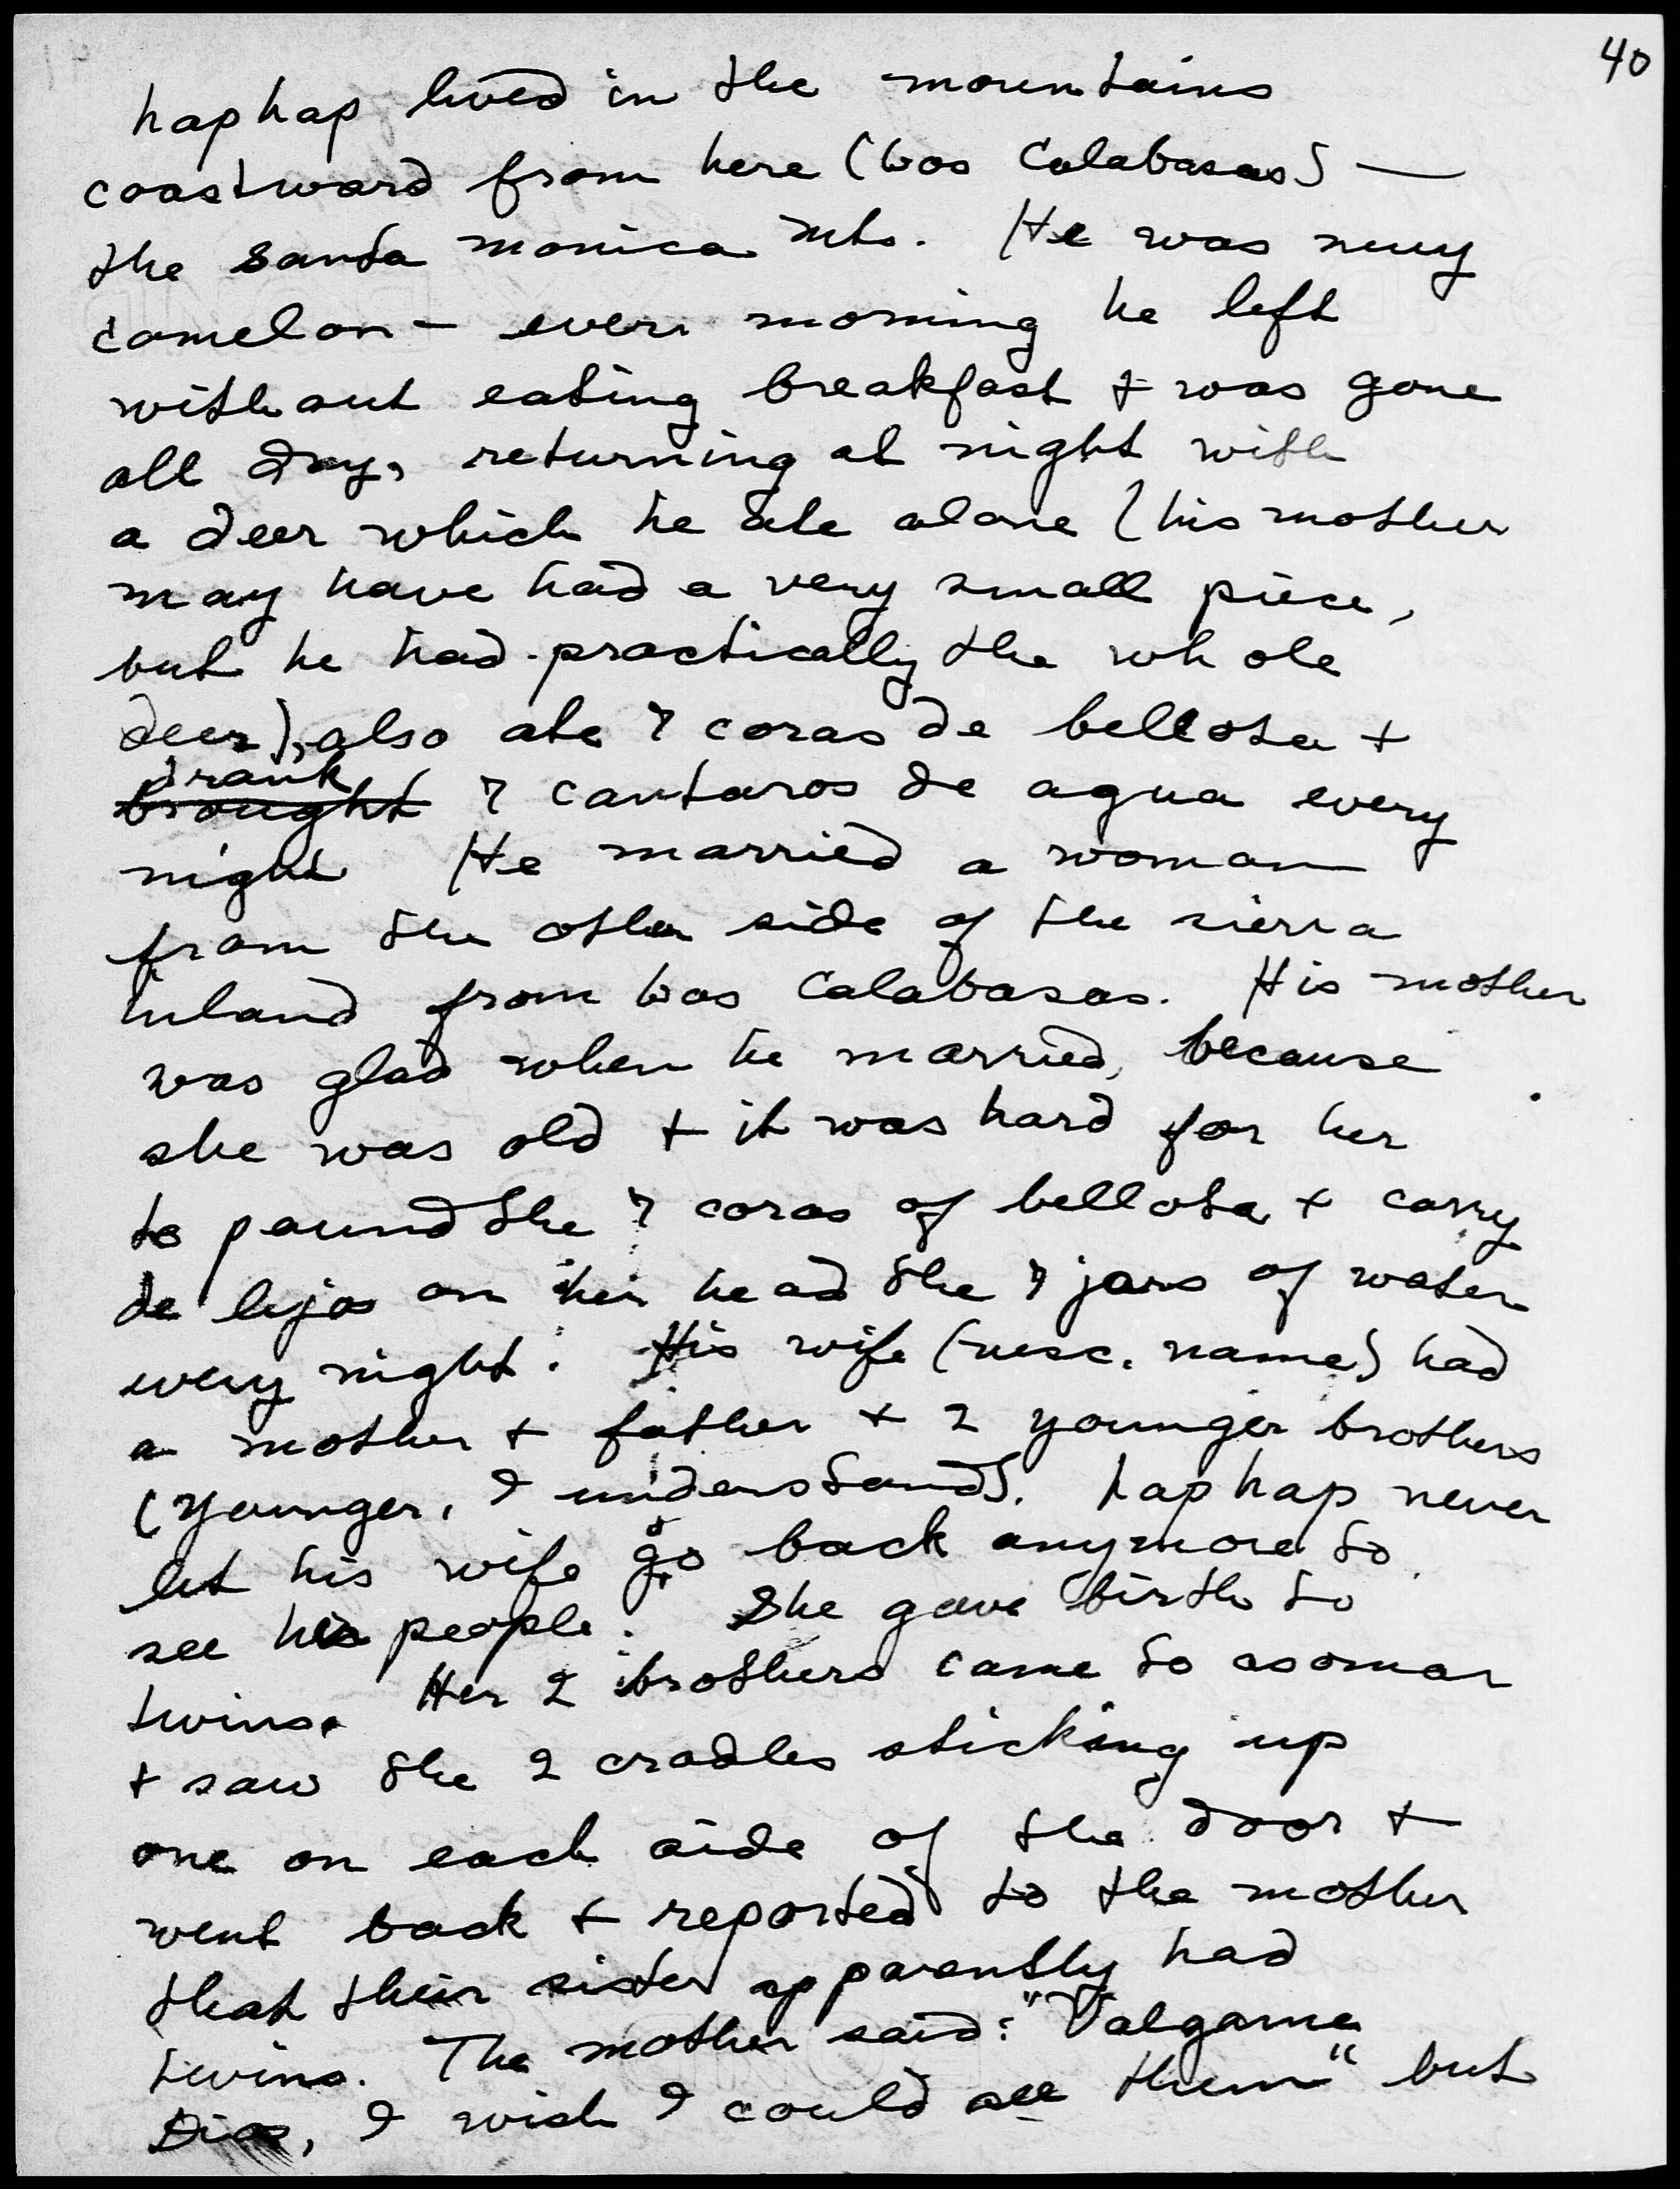 40
haphap lived in the mountains
coastward from here (Los Calabasas) —
the Santa Monica Mts. He was muy
comelon — every morning he left
without eating breakfast + was gone
all day, returning at night with
a deer which he ate alone (his mother
may have had a very small piece,
but he had practically the whole
deer), also ate 7 coras de bellota +
drank
brought 7 cantaros de agua every
night He married a woman
from the other side of the sierra
inland from Los Calabasas. His mother
was glad when he married, because
she was old + it was hard for her
to pound the 7 coras of bellota + carry
de lejos on her head the 7 jars of water
every night. His wife (nesc. name) had
a mother + father + 2 younger brothers
(younger, I understand). haphap never
let his wife go back anymore to
see her people. She gave birth to
twins. Her 2 brothers came to asomar
+ saw the 2 cradles sticking up
one on each side of the door +
went back + reported to the mother
that their sister apparently had
twins. The mother said: "Valgame
Dios, I wish I could see them" but